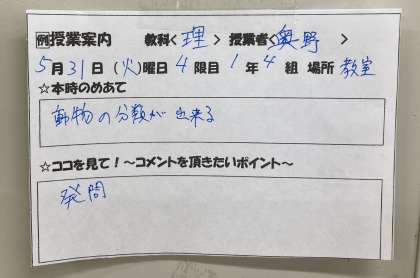 例授業案内 教科<理> 授業者<奥野>
5月31日(火)曜日4限目1年4組 場所 教室
☆本時のめあて
動物の分類が出来る
☆ココを見て!~コメントを頂きたいポイント~
発問